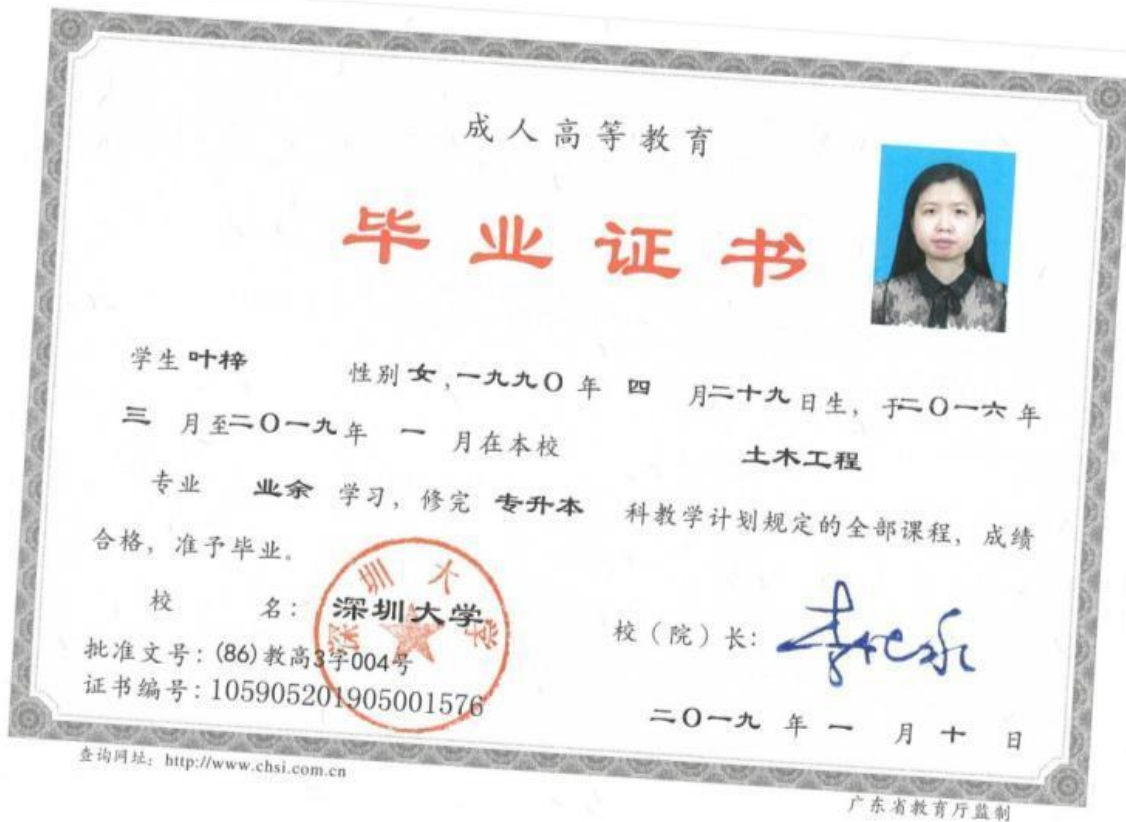 成人高等教育
毕业证书
学生 叶梓 性别 女, 一九九〇 年 四 月 二十九 日生, 于 二〇一六 年
三 月至 二〇一九 年 一 月在本校 土木工程
专业 业余 学习, 修完 专升本 科教学计划规定的全部课程, 成绩
合格, 准予毕业。
校 名: 深圳大学
深圳大学
校(院)长:
批准文号: (86)教高3字004号
证书编号: 105905201905001576
二〇一九 年 一 月 十 日
查询网址: http://www.chsi.com.cn
广东省教育厅监制